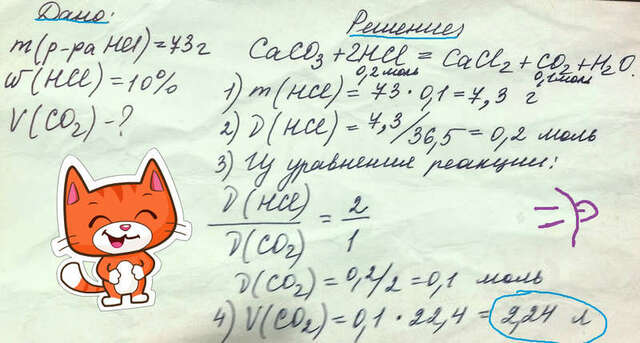 Дано:
m(р-ра HCl)=73г
w(HCl)=10%
V(CO2)-?
Решение:
CaCO3+2HCl=CaCl2+CO2+H2O.
0,2моль 0,1моль
1) m(HCl)=73·0,1=7,3 г
2) ν(HCl)=7,3/36,5=0,2 моль
3) Из уравнения реакции:
ν(HCl)/ν(CO2)=2/1
ν(CO2)=0,2/2=0,1 моль
4) V(CO2)=0,1·22,4=2,24 л